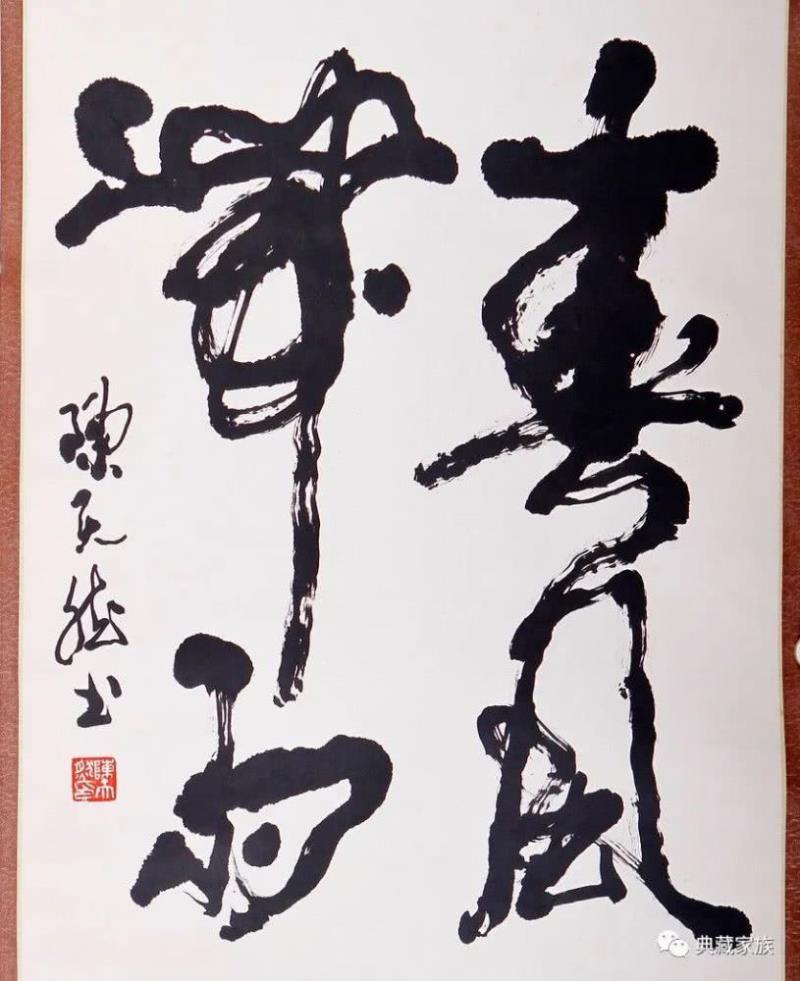 春風
雨
陳天然书
典藏家族